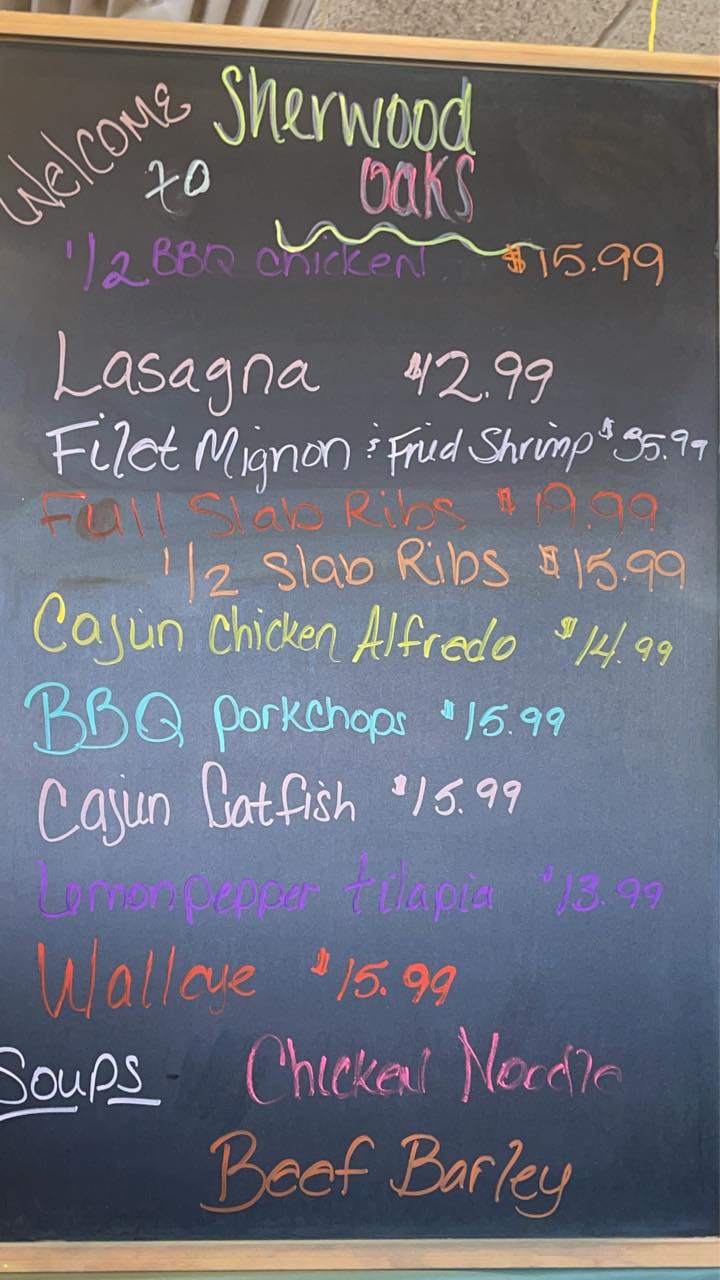 Welcome to Sherwood Oaks
1/2 BBQ chicken $15.99
Lasagna $12.99
Filet Mignon & Fried Shrimp $35.99
Full Slab Ribs $19.99
1/2 Slab Ribs $15.99
Cajun Chicken Alfredo $14.99
BBQ porkchops $15.99
Cajun Catfish $15.99
Lemonpepper tilapia $13.99
Walleye $15.99
Soups - Chicken Noodle
Beef Barley